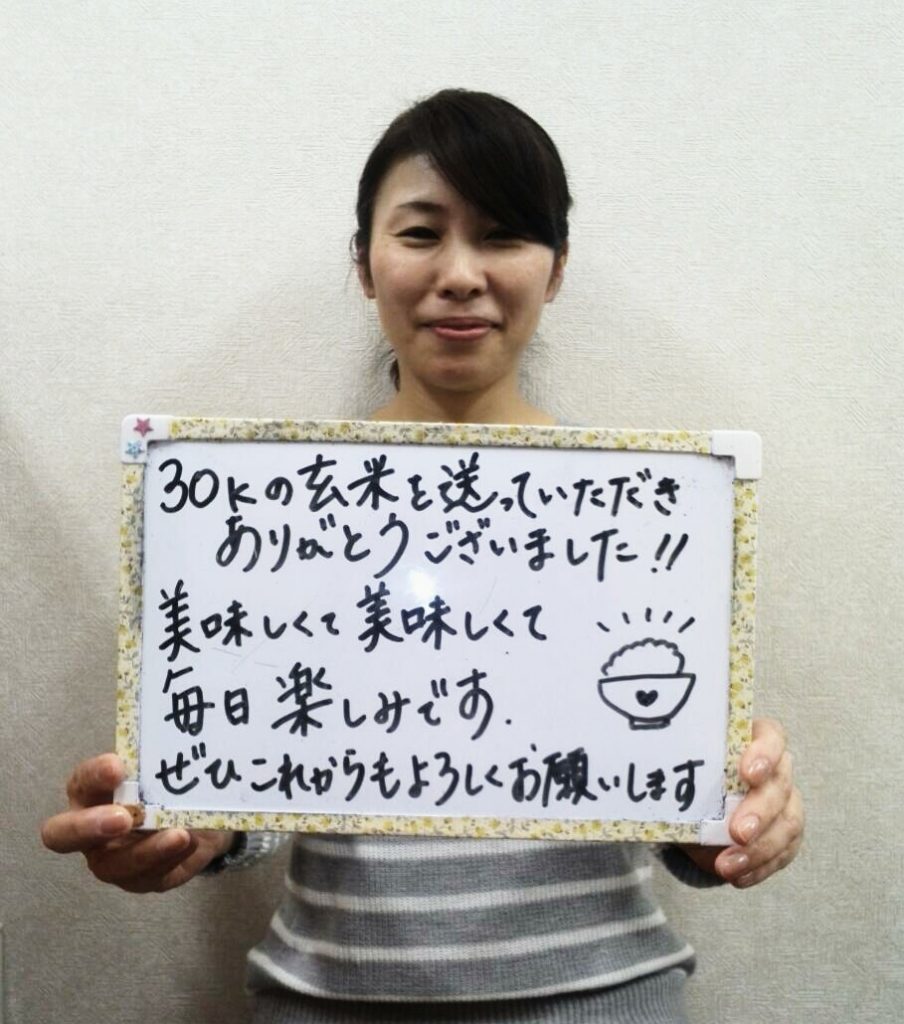 30Kの玄米を送っていただき
ありがとうございました!!
美味しくて美味しくて
毎日楽しみです.
ぜひこれからもよろしくお願いします